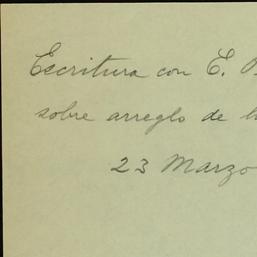 Escritura con E.
sobre arreglo de
23 Marzo